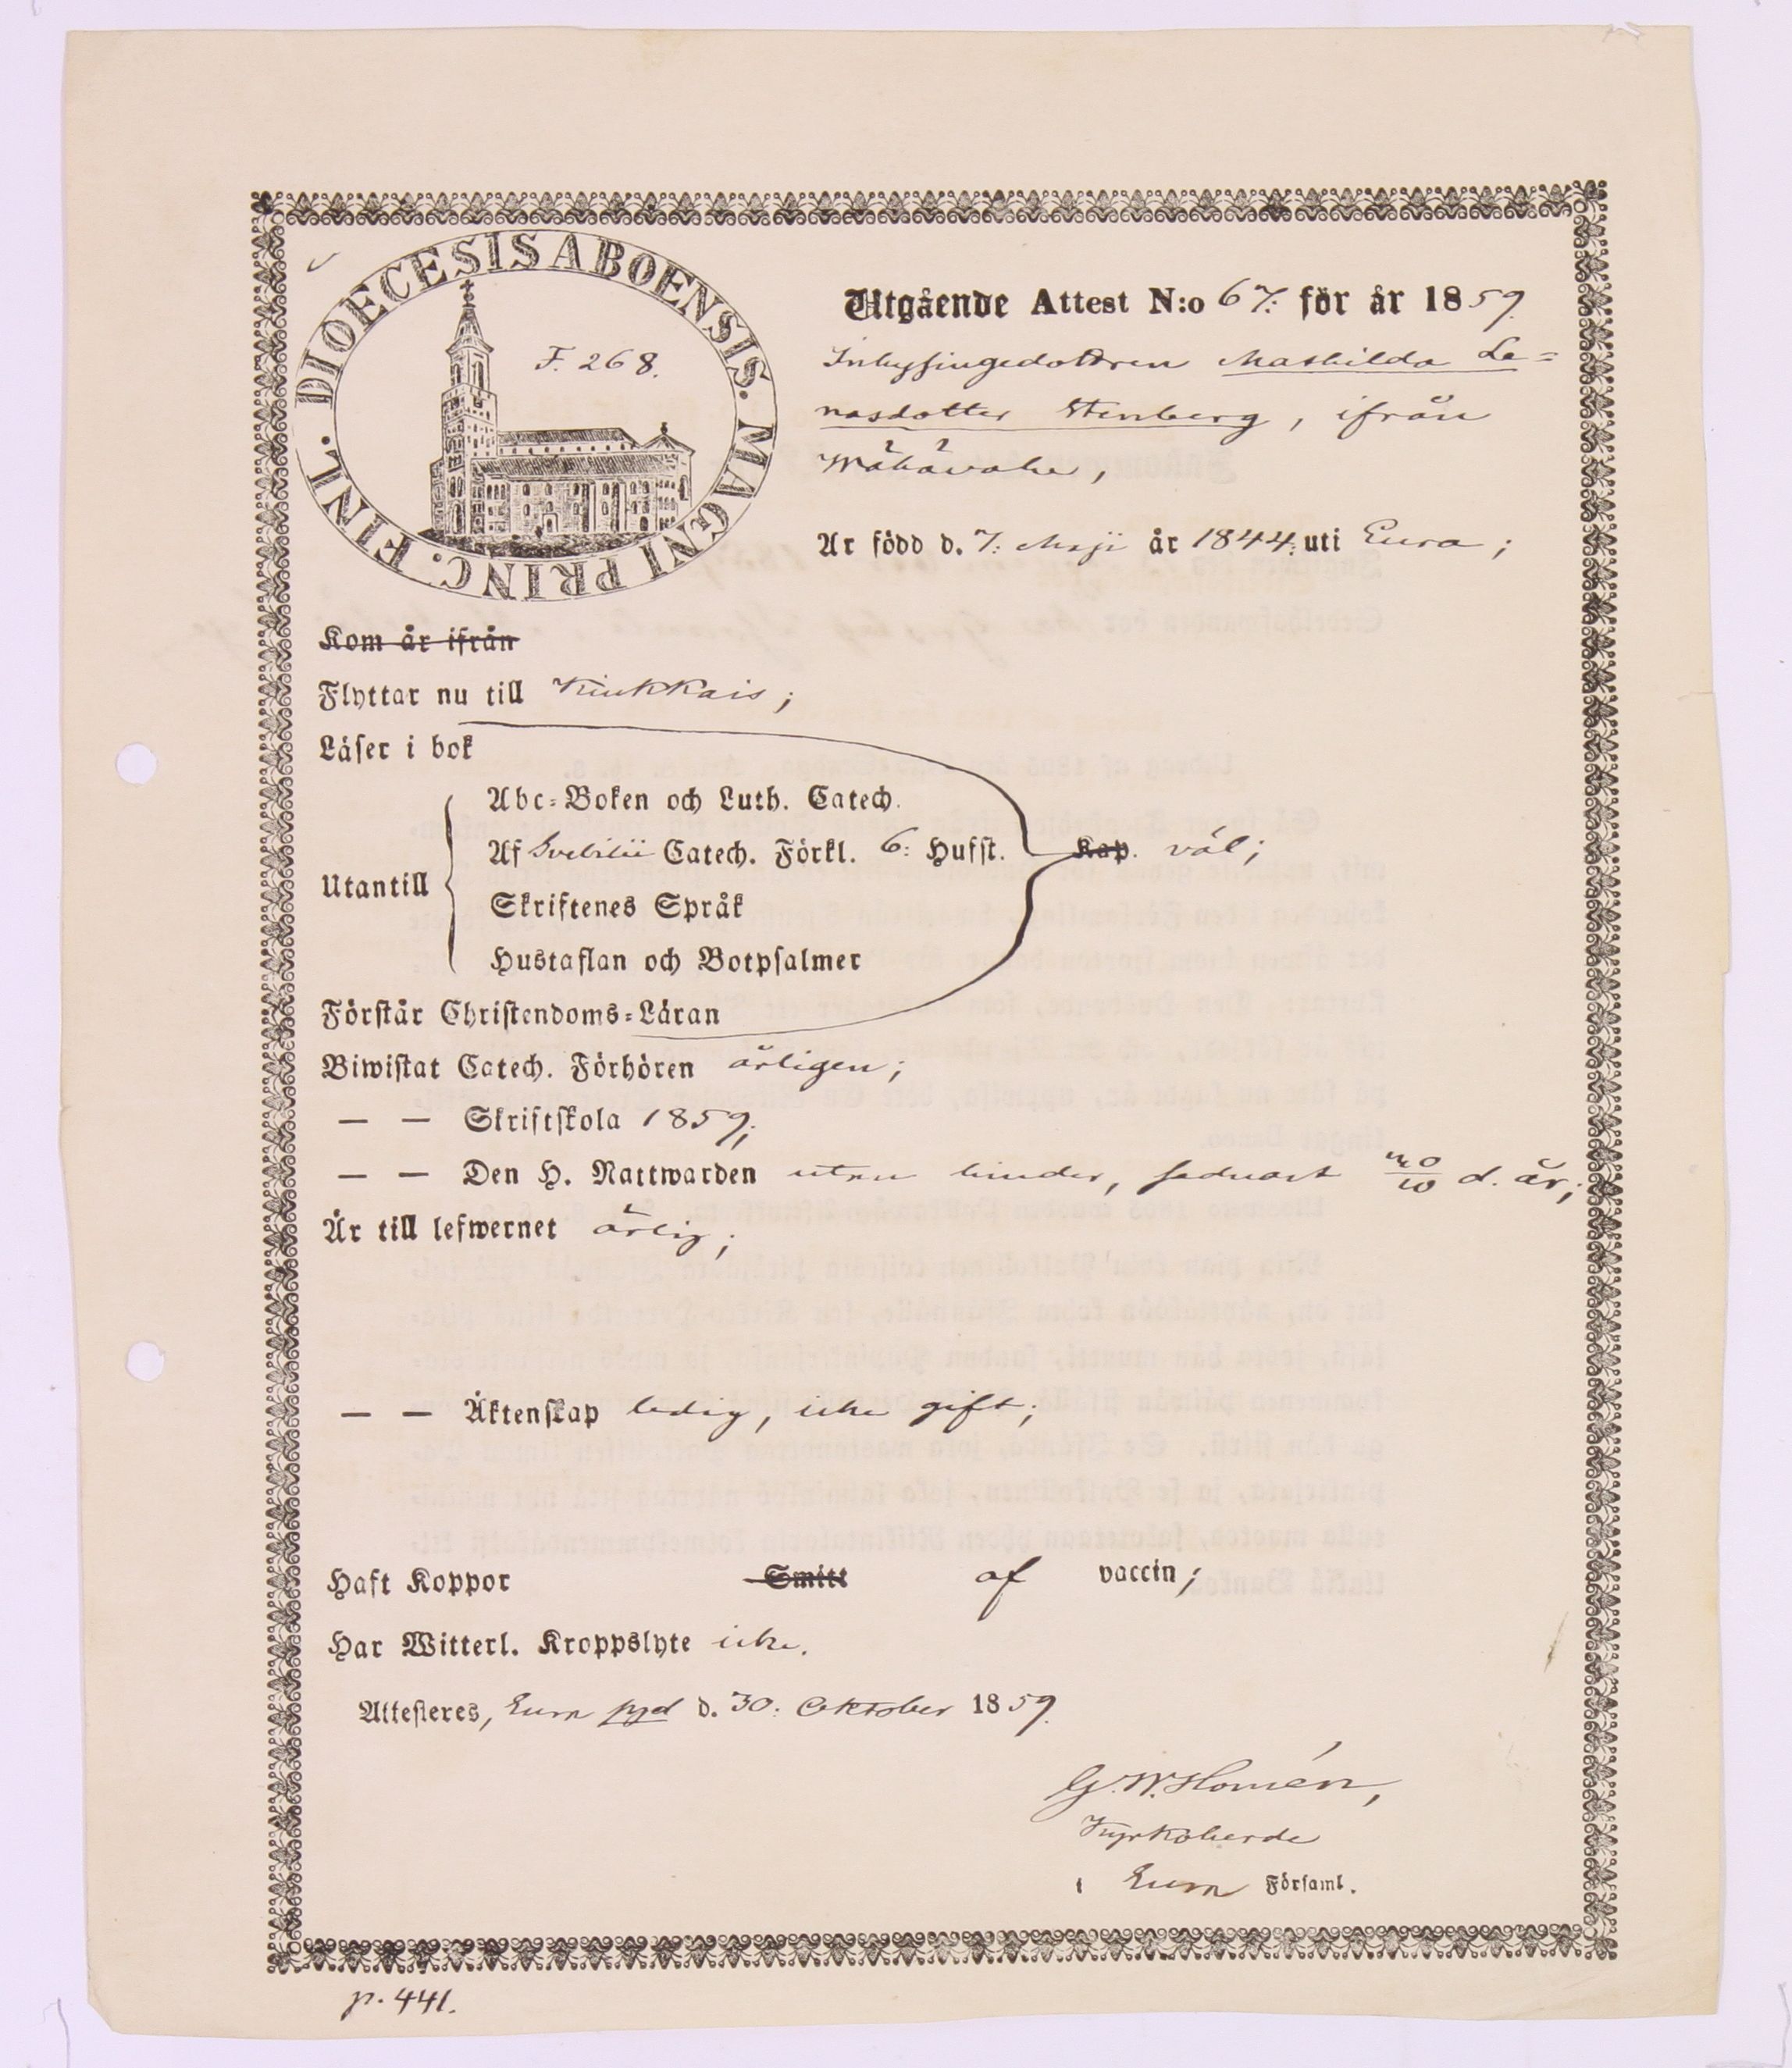 DIOECESIS ABOENSIS. MAGNI PRINC. FINL.
F. 268.
Utgående Attest N:o 67. för år 1859.
Inhysingedottren Mathilda Le=
nasdotter Stenberg, ifrån
Wähävahe,
Är född d. 7: Maji år 1844. uti Eura;
Kom år ifrån
Flyttar nu till Kiukkais;
Läser i bok
Utantill
Abc=Boken och Luth. Catech.
Af Svebilii Catech. Förkl. 6: Hufst. Kap. väl;
Skriftenes Språk
Hustaflan och Botpsalmer
Förstår Christendoms=Läran
Biwistat Catech. Förhören årligen;
— — Skriftskola 1859;
— — Den H. Nattwarden utan hinder, sednast d. år;
Är till lefwernet ärlig;
— — Äktenskap ledig, icke gift;
Haft Koppor Smitt af vaccin;
Har Witterl. Kroppslyte icke.
Attesteres, Eura pgd d. 30: Oktober 1859.
G. W. Homén,
Kyrkoherde
i Eura Församl.
p. 441.